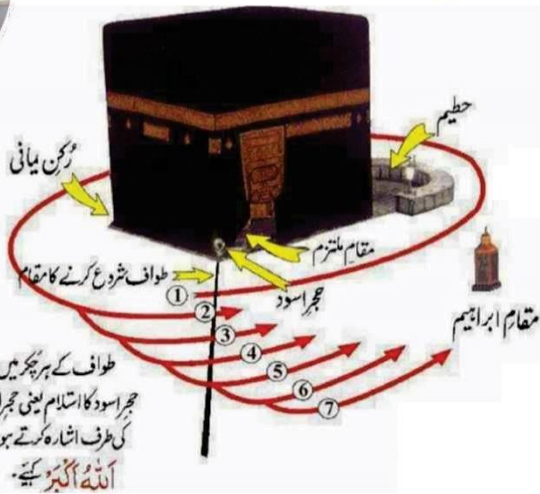 حطیم
رُکن یمانی
مقامِ ملتزم
طواف شروع کرنے کا مقام
حجرِ اسود
مقامِ ابراہیم
①
②
③
④
⑤
⑥
⑦
طواف کے ہر چکر میں
حجرِ اسود کا استلام یعنی حجرِ
کی طرف اشارہ کرتے ہو
اَللّٰهُ اَکْبَرُ کہیے۔